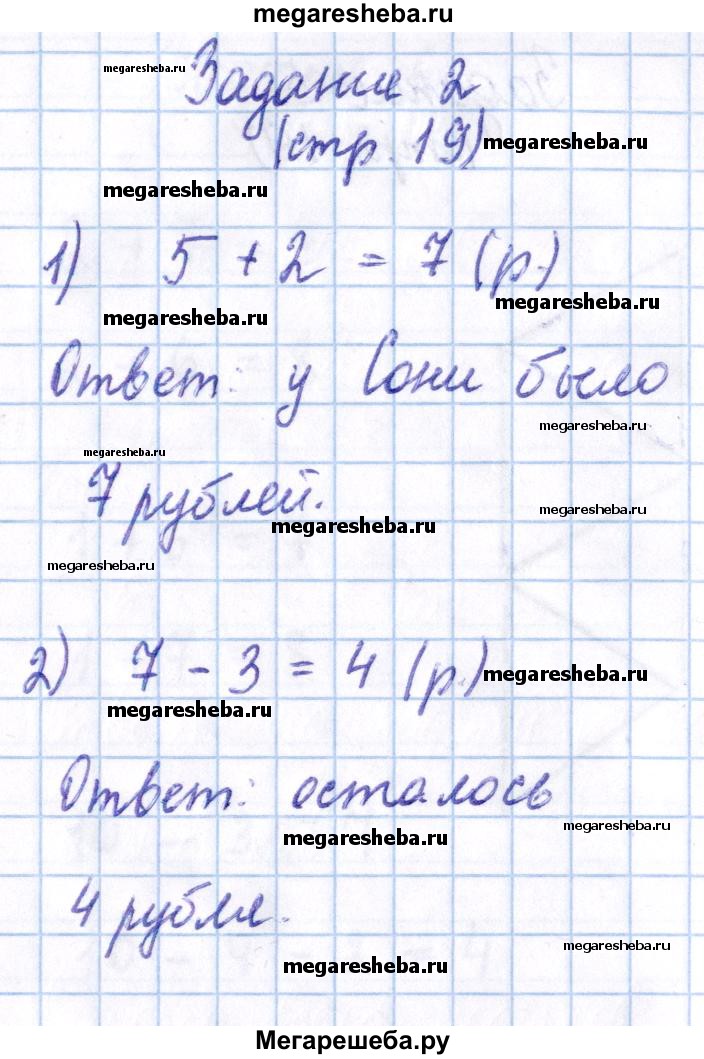 megaresheba.ru
megaresheba.ru
Задание 2
(стр. 19) megaresheba.ru
megaresheba.ru
1) 5 + 2 = 7 (р.)
megaresheba.ru
megaresheba.ru
Ответ: у Сони было
megaresheba.ru
megaresheba.ru
7 рублей.
megaresheba.ru
megaresheba.ru
megaresheba.ru
2) 7 - 3 = 4 (р.) megaresheba.ru
megaresheba.ru
Ответ: осталось
megaresheba.ru
megaresheba.ru
4 рубля.
megaresheba.ru
megaresheba.ru
Мегарешеба.ру